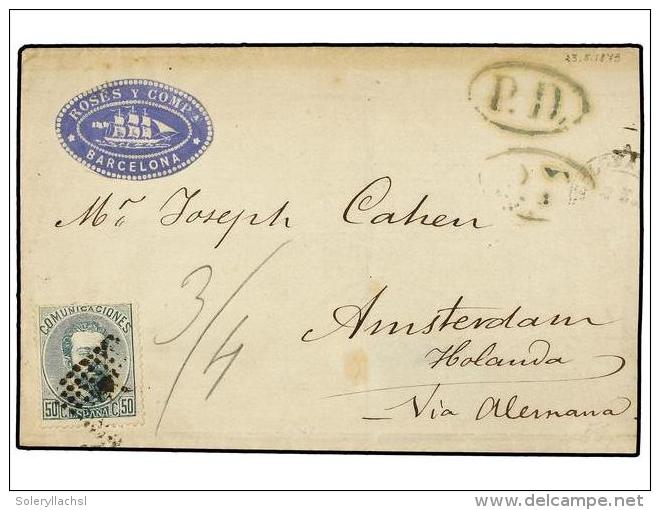 23.5.1873
ROSÉS Y COMPA
BARCELONA
P.D.
Mr. Joseph Cahen
3/4
Amsterdam
Holanda
Via Alemana
COMUNICACIONES
50 C. ESPAÑA C. 50
Soleryllachsl
delcampe.net